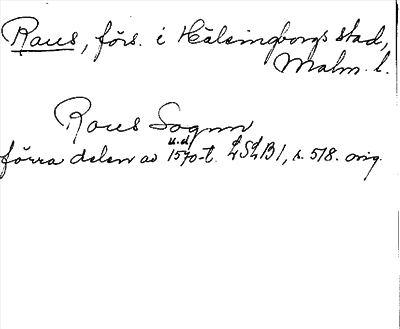 Raus, förs. i Hälsingborgs stad,
Malm. l.
Raus Sogнn
u. d.
förra delen av 1570-t. LSLB 1, s. 518. orig.